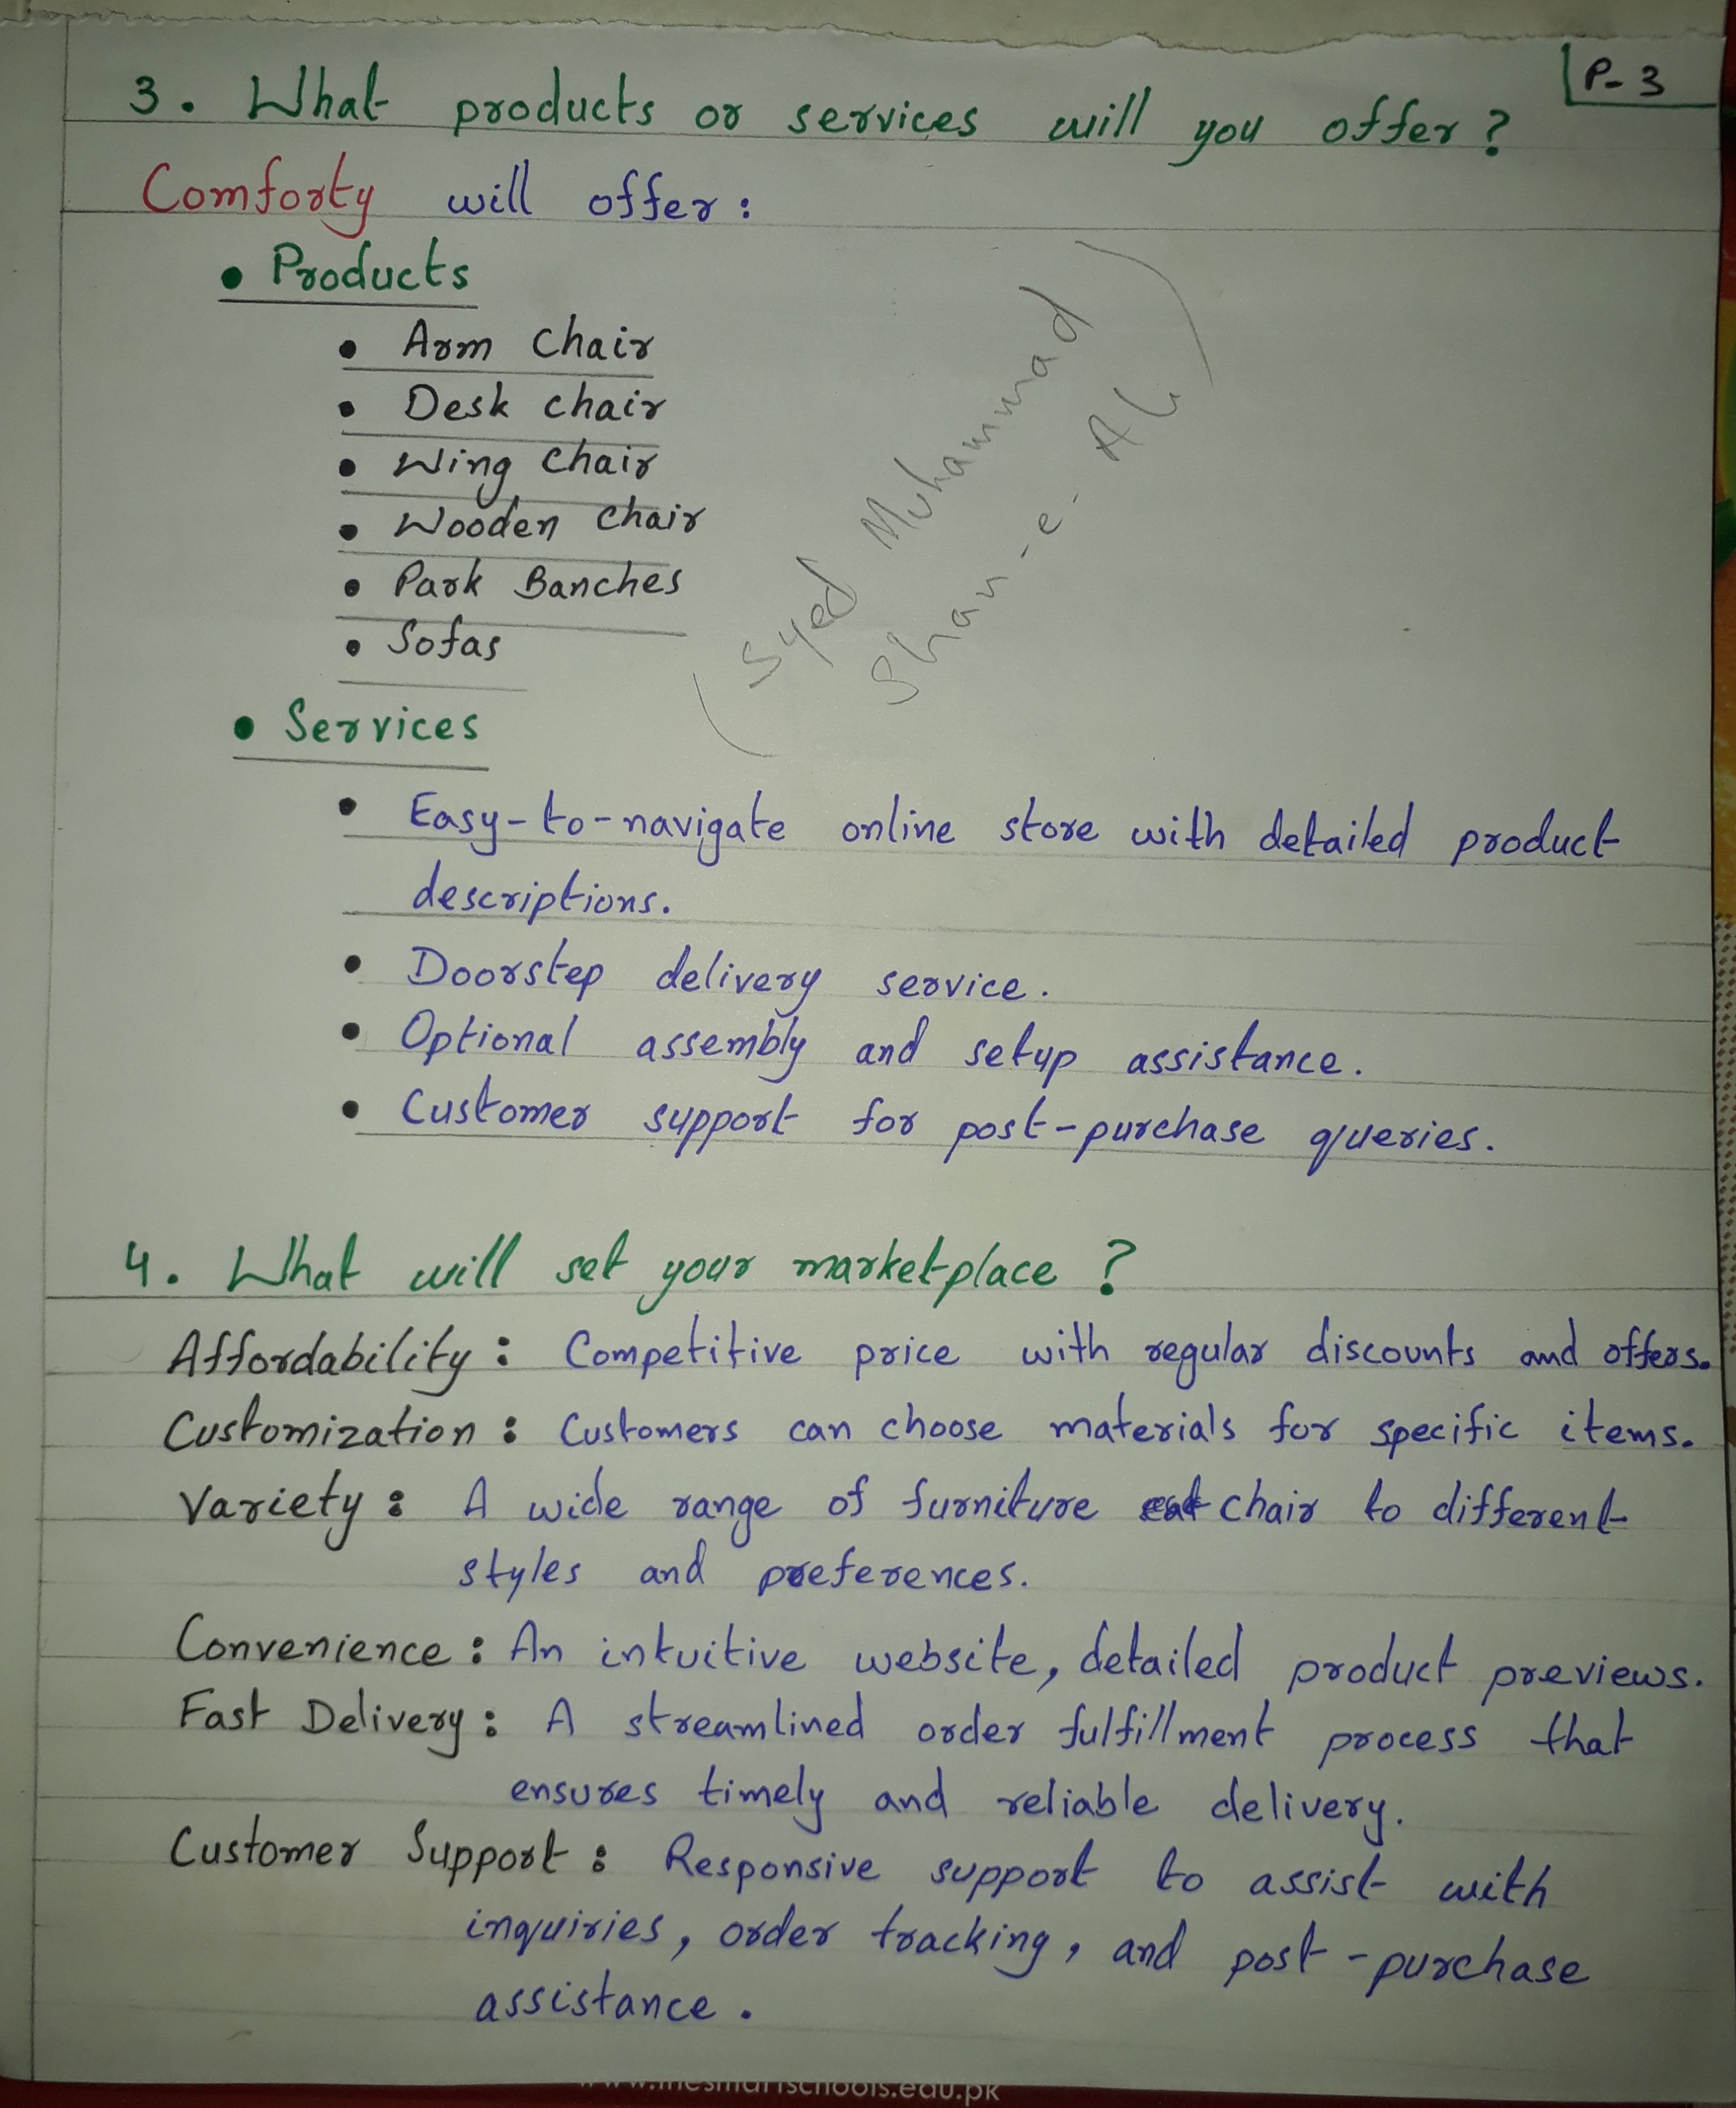 P-3
3. What products or services will you offer?
Comforty will offer:
• Products
• Arm Chair
• Desk chair
• Wing Chair
• Wooden Chair
• Park Banches
• Sofas
(Syed Muhammad
Shan-e-Ali)
• Services
• Easy-to-navigate online store with detailed product
descriptions.
• Doorstep delivery service.
• Optional assembly and setup assistance.
• Customer support for post-purchase queries.
4. What will set your marketplace?
Affordability: Competitive price with regular discounts and offers.
Customization: Customers can choose materials for specific items.
Variety: A wide range of furniture chair to different
styles and preferences.
Convenience: An intuitive website, detailed product previews.
Fast Delivery: A streamlined order fulfillment process that
ensures timely and reliable delivery.
Customer Support: Responsive support to assist with
inquiries, order tracking, and post-purchase
assistance.
www.thesmartschools.edu.pk